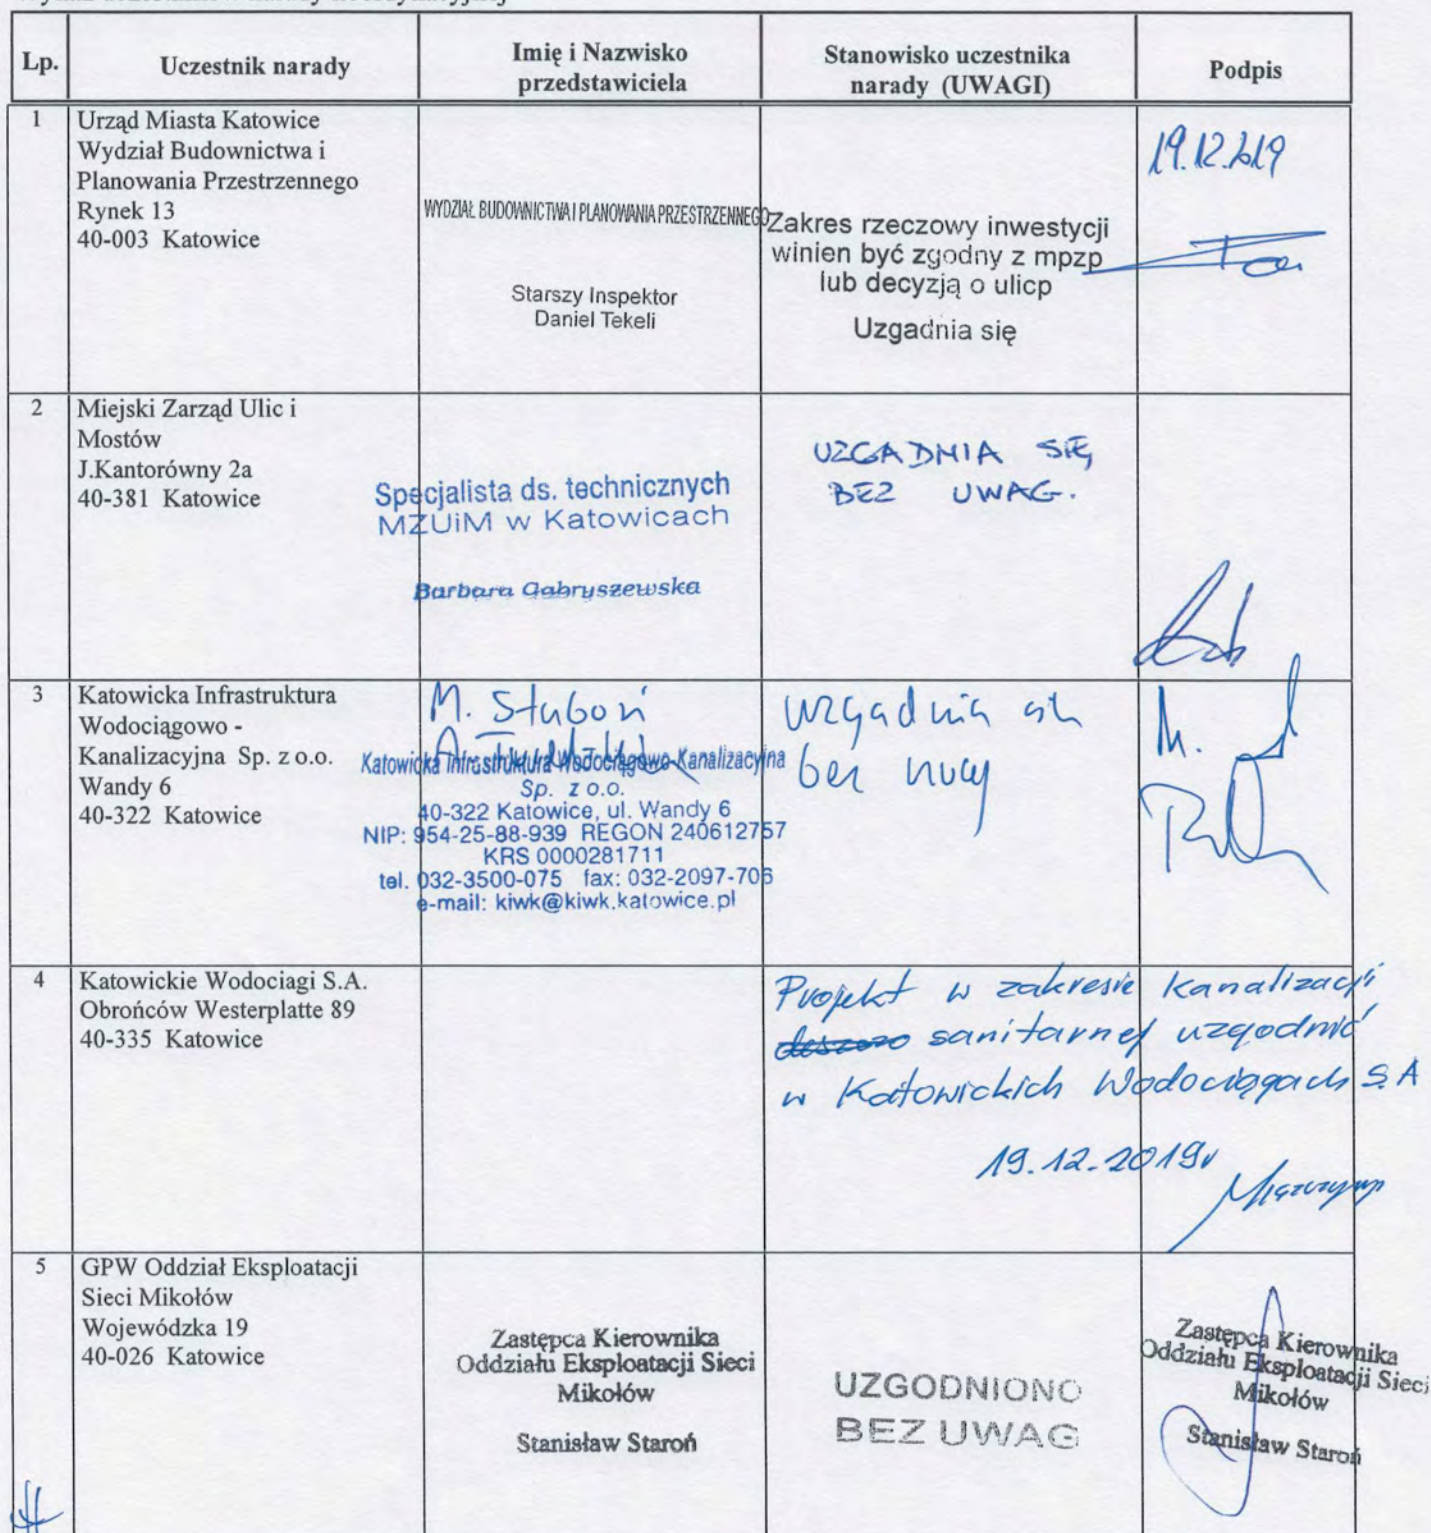 Lp.
Uczestnik narady
Imię i Nazwisko
przedstawiciela
Stanowisko uczestnika
narady (UWAGI)
Podpis
1
Urząd Miasta Katowice
Wydział Budownictwa i
Planowania Przestrzennego
Rynek 13
40-003 Katowice
WYDZIAŁ BUDOWNICTWA I PLANOWANIA PRZESTRZENNEGO
Starszy Inspektor
Daniel Tekeli
Zakres rzeczowy inwestycji
winien być zgodny z mpzp
lub decyzją o ulicp
Uzgadnia się
19.12.2019
2
Miejski Zarząd Ulic i
Mostów
J.Kantorówny 2a
40-381 Katowice
Specjalista ds. technicznych
MZUiM w Katowicach
Barbara Gabryszewska
UZGADNIA SIĘ
BEZ UWAG.
3
Katowicka Infrastruktura
Wodociągowo -
Kanalizacyjna Sp. z o.o.
Wandy 6
40-322 Katowice
M. Staboń
Katowicka Infrastruktura Wodociągowo-Kanalizacyjna
Sp. z o.o.
40-322 Katowice, ul. Wandy 6
NIP: 954-25-88-939 REGON 240612757
KRS 0000281711
tel. 032-3500-075 fax: 032-2097-706
e-mail: kiwk@kiwk.katowice.pl
uzgadnia się
bez
4
Katowickie Wodociagi S.A.
Obrońców Westerplatte 89
40-335 Katowice
Projekt w zakresie kanalizacji
deszczo sanitarnej uzgodnić
w Katowickich Wodociągach S.A
19.12.2019r
5
GPW Oddział Eksploatacji
Sieci Mikołów
Wojewódzka 19
40-026 Katowice
Zastępca Kierownika
Oddziału Eksploatacji Sieci
Mikołów
Stanisław Staroń
UZGODNIONO
BEZ UWAG
Zastępca Kierownika
Oddziału Eksploatacji Sieci
Mikołów
Stanisław Staroń